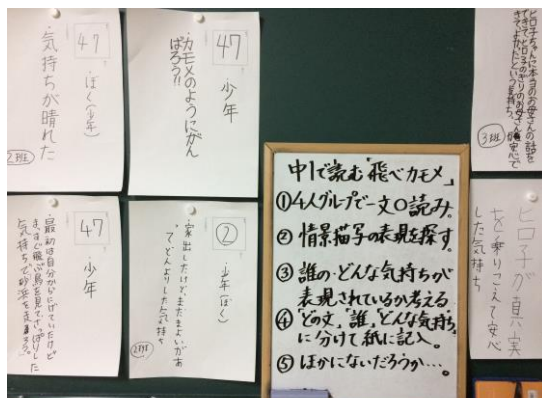 47
ぼく(少年)
気持ちが晴れた
2班
47
少年
カモメのようにがん
ばろう!!
ヒロ子ちゃんに本当のお母さんの話を
3班
47
少年
最初は自分からにげていたけど
まっすぐ飛ぶ鳥を見てさっぱりした
気持ちで砂浜を走ろう。
②
少年(ぼく)
家出したけど、まだまよいがあ
って、どんよりした気持ち
2班
中1で読む「飛べカモメ」
①4人グループで一文〇読み。
②情景描写の表現を探す。
③誰の・どんな気持ちが
表現されているか考える
④「どの文」「誰」「どんな気持ち」
に分けて紙に記入。
⑤ほかにないだろうか…。
ヒロ子が真実
を乗りこえて安心
した気持ち